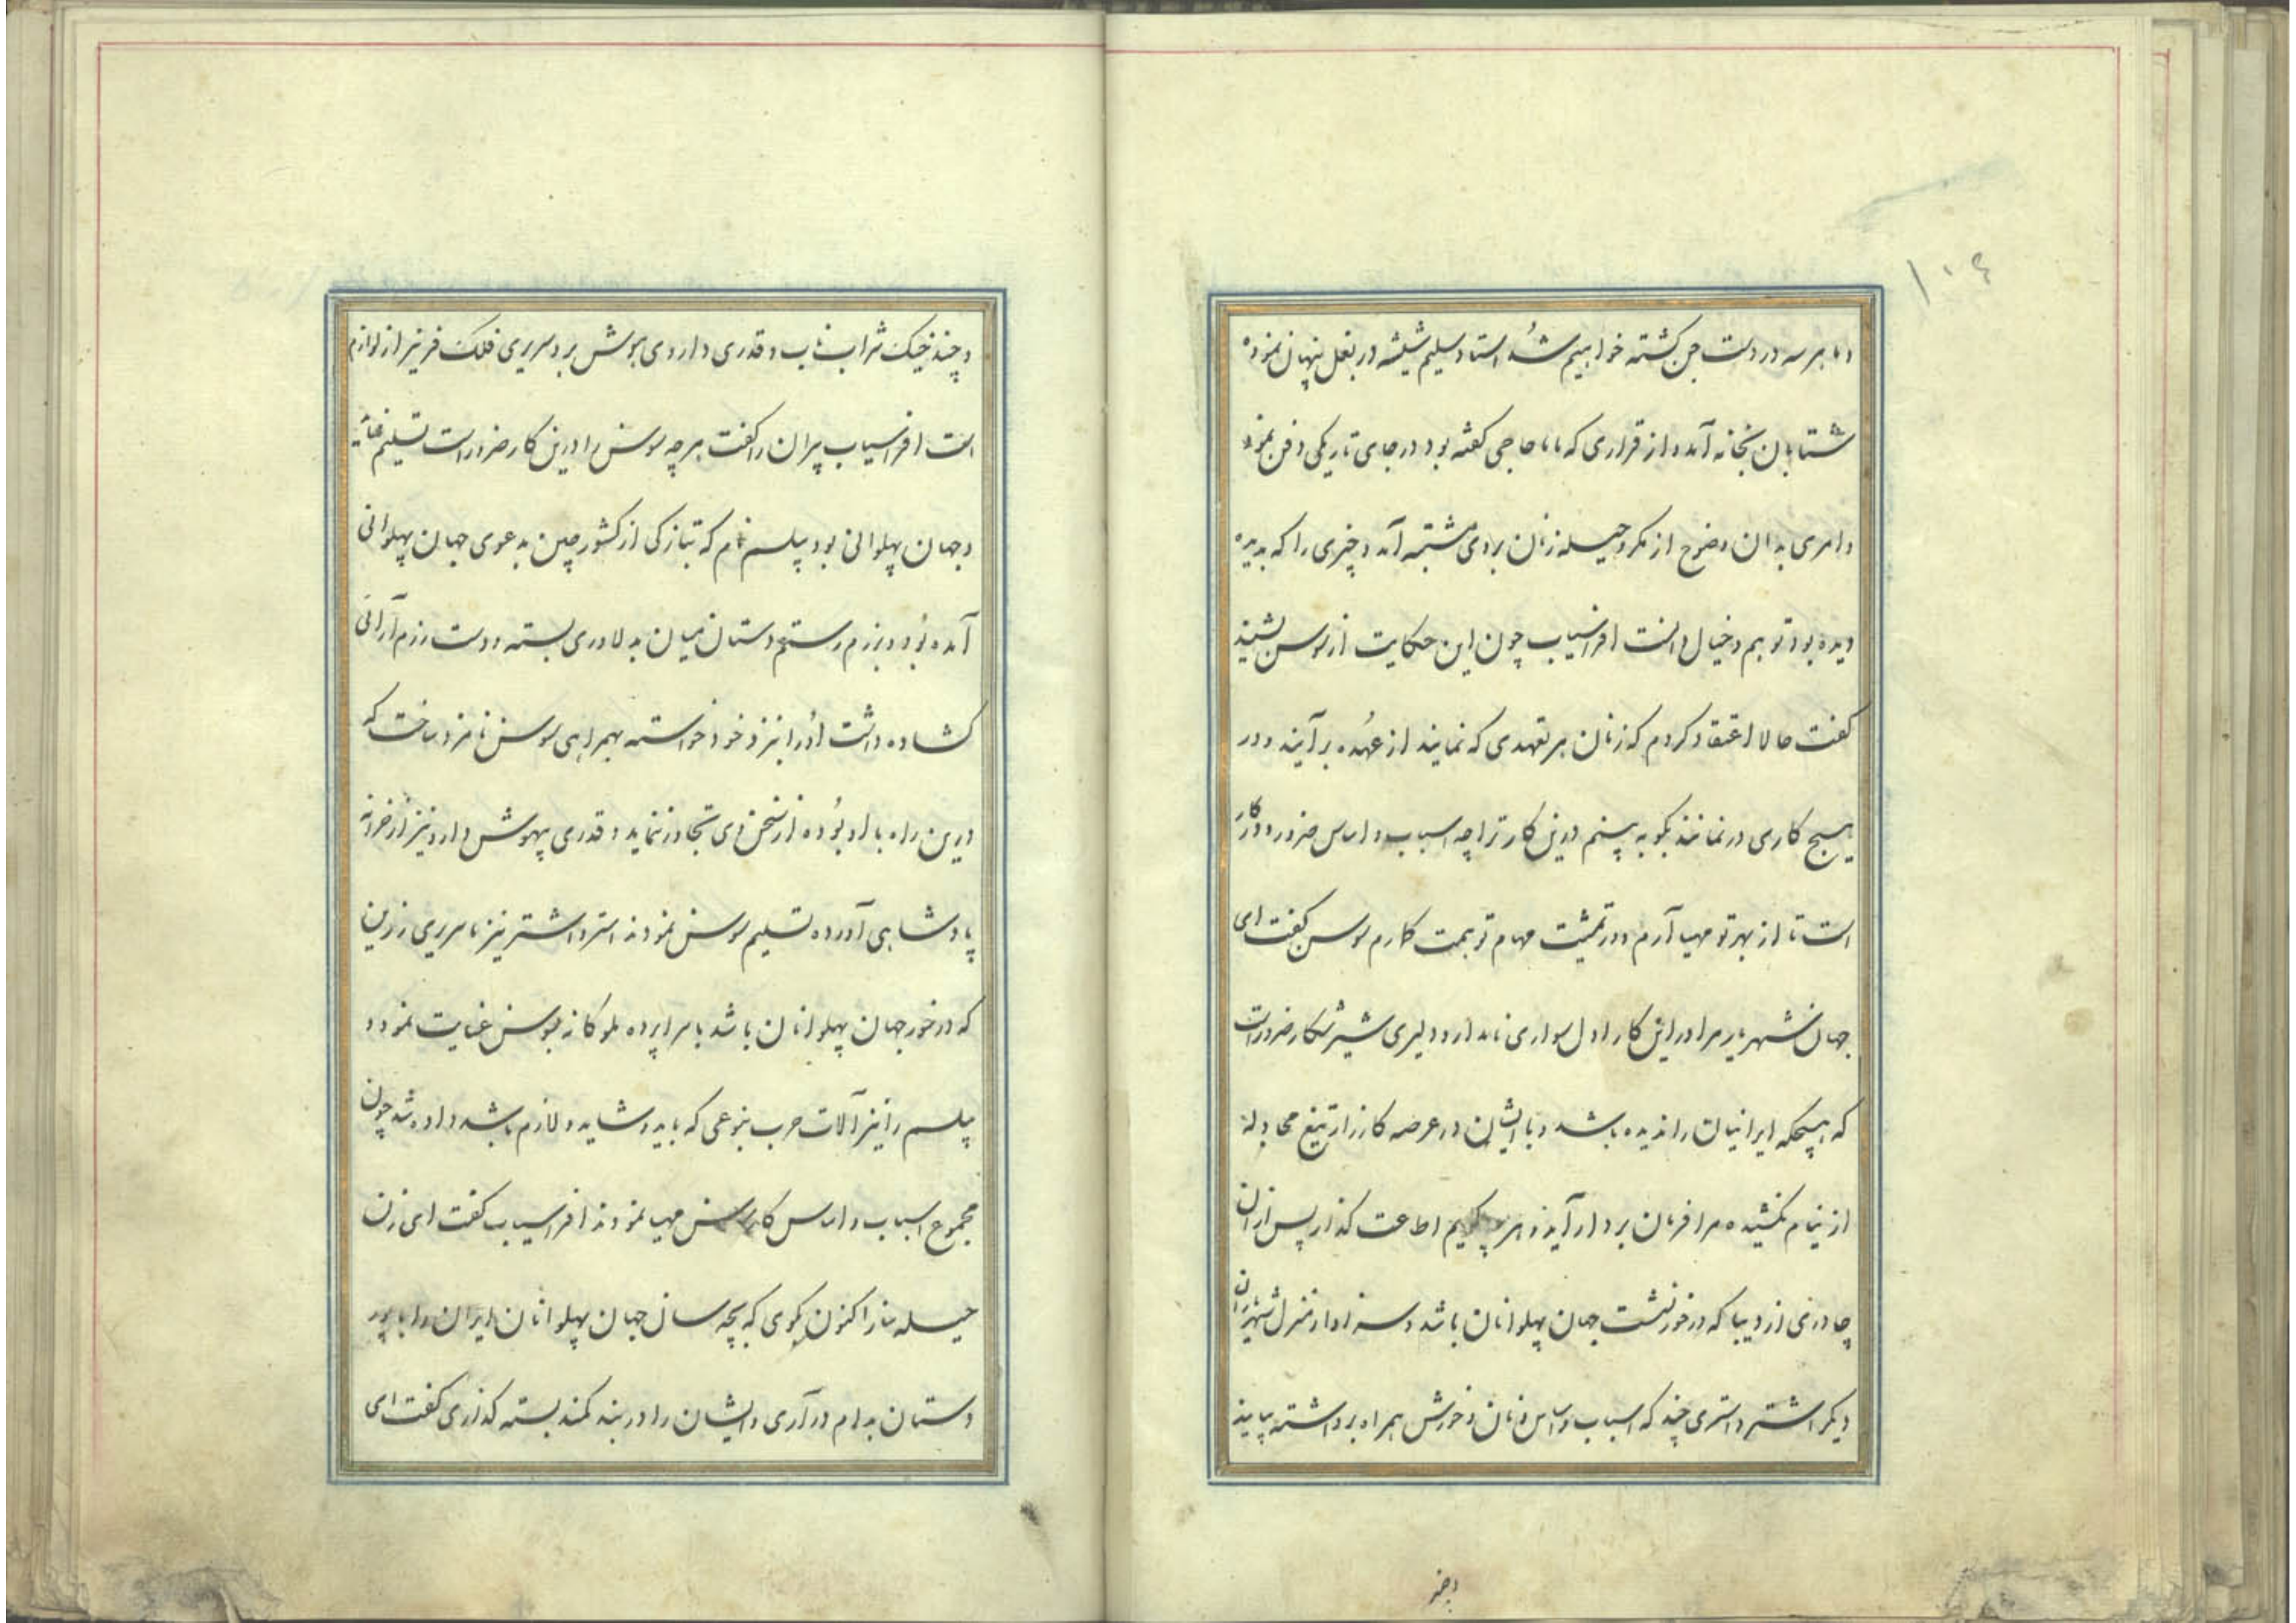 ۱۰۴
و ما هر سه در دست جن کشته خواهیم شد استاد سلیم شیشه در بغل پنهان نموده
شتابان بخانه آمده از قراری که ماما حاجی کفته بود در جای تاریکی دفن نمود
و امری بدان وضوح از مکر و حیله زنان بر وی مشتبه آمد و چیزی را که بدیده
دیده بود توهم و خیال دانست افراسیاب چون این حکایت از سوسن بشنید
کفت حالا اعتقاد کردم که زنان هر تعهدی که نمایند از عهده برآیند و در
هیچ کاری در نمانند بکو به بینم درین کار ترا چه اسباب و اساس ضرور و در کار
است تا از بهر تو مهیا آرم و در تمشیت مهام تو همت کمارم سوسن کفت ای
جهان شهریار مرا در این کار اول سواری نامدار و دلیری شیر شکار ضرور است
که هیچکه ایرانیان را ندیده باشد و با ایشان در عرصه کارزار تیغ مجادله
از نیام نکشیده مرا فرمان بردار آید و هر چه کویم اطاعت کذار پس از آن
چادری از دیبا که در خور نشست جهان پهلوانان باشد و سزاوار منزل شهریاران
دیکر اشتر و استری چند که اسباب و اساس و نان و خورش همراه برداشته بیایند
و چند
و چند خیک شراب ناب و قدری داروی بیهوش بر و سریری فلک فر نیز از لوازم
است افراسیاب پیران را کفت هر چه سوسن را درین کار ضرور است تسلیم نمائید
و جهان پهلوانی بود پیلسم نام که بتازکی از کشور چین بدعوی جهان پهلوانی
آمده بود و برزم رستم دستان میان به لاوری بسته و دست رزم آرائی
کشاده داشت او را بنزد خود خواسته بهمراهی سوسن نامزد ساخت که
درین راه با او بوده از سخن وی تجاوز ننماید و قدری بیهوش دارو نیز از خزانه
پادشاهی آورده تسلیم سوسن نمودند استر و اشتر نیز با سریری زرین
که در خور جهان پهلوانان باشد با سراپرده ملوکانه بسوسن عنایت نمود و
پیلسم را نیز آلات حرب بنوعی که باید و شاید و لازم باشد داده شد چون
مجموع اسباب و اساس کار سوسن مهیا نمودند افراسیاب کفت ای زن
حیله ساز اکنون بکوی که بچه سان جهان پهلوانان ایران را با پور
دستان بدام در آری و ایشان را در بند کمند بسته کذاری کفت ای